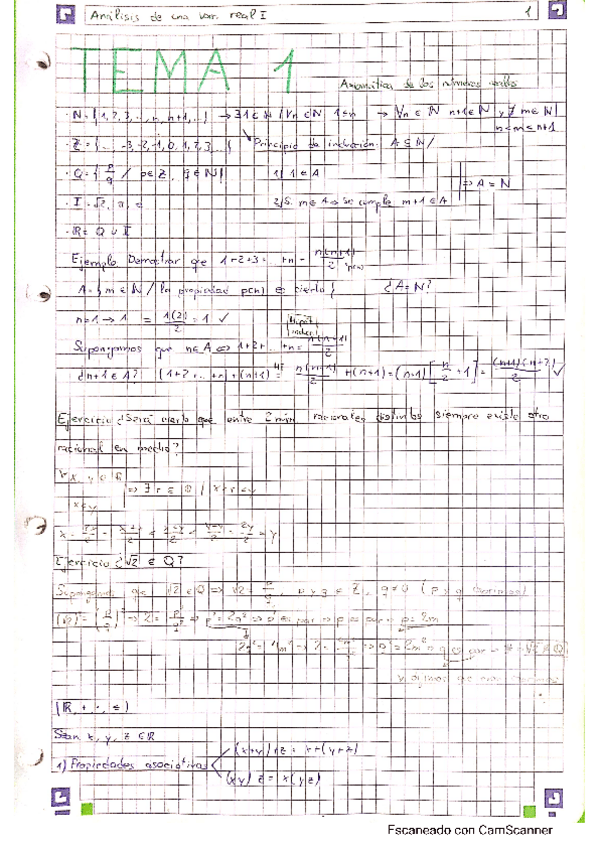 Análisis de una var. real I 1
TEMA 1
Axiomática de los números reales
· N = {1, 2, 3, ..., n, n+1, ...} → ∃ 1 ∈ N / ∀n ∈ N 1 ≤ n → ∀n ∈ N n+1 ∈ N y ∄ m ∈ N |
n < m < n+1
· Z = {... -3, -2, -1, 0, 1, 2, 3, ...} Principio de inducción: A ⊆ N /
· Q = { p/q / p ∈ Z, q ∈ N } 1) 1 ∈ A
⇒ A = N
· I = √2, π, e 2) Si m ∈ A ⇒ se cumple m+1 ∈ A
· R = Q ∪ I
Ejemplo Demostrar que 1+2+3+ ... +n = n(n+1)/2 p(n)
A = { m ∈ N / la propiedad p(n) es cierto } ¿A = N?
n=1 → 1 = 1(2)/2 = 1 ✓
Supongamos que n ∈ A ⇔ 1+2+ ... +n = n(n+1)/2
¿n+1 ∈ A? (1+2+ ... +n)+(n+1) = n(n+1)/2 + (n+1) = (n+1)[n/2 + 1] = (n+1)(n+2)/2 ✓
Ejercicio ¿Será cierto que entre 2 núm racionales distintos siempre existe otro
racional en medio?
∀ x, y ∈ Q
⇒ ∃ r ∈ Q | x<r<y
x<y
x = 2x/2 = x+x/2 < x+y/2 < y+y/2 = 2y/2 = y
Ejercicio ¿√2 ∈ Q?
Supongamos que √2 ∈ Q ⇒ √2 = p/q, p y q ∈ Z, q ≠ 0 (p y q
(√2)² = (p/q)² ⇒ 2 = p²/q² ⇒ p² = 2q² ⇒ p es par ⇒ p = 2m
(R, +, ·, ≤)
Sean x, y, z ∈ R
1) Propiedades asociativas (x+y)+z = x+(y+z)
(xy)z = x(yz)
Escaneado con CamScanner